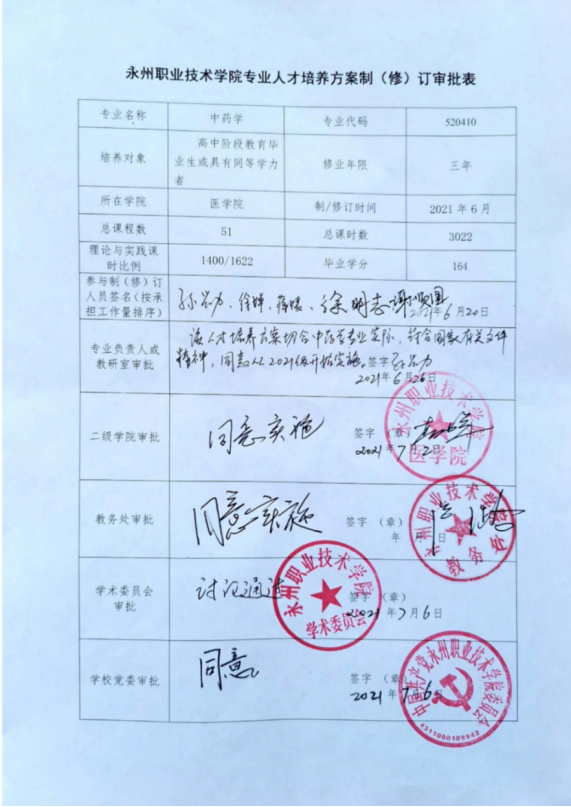 永州职业技术学院专业人才培养方案制（修）订审批表
专业名称 中药学 专业代码 520410
培养对象 高中阶段教育毕
业生或具有同等学力
者 修业年限 三年
所在学院 医学院 制/修订时间 2021年6月
总课程数 51 总课时数 3022
理论与实践课
时比例 1400/1622 毕业学分 164
参与制（修）订
人员签名（按承
担工作量排序）
2021年6月20日
专业负责人或
教研室审批
该人才培养方案切合中药学专业实际，符合国家有关文件
精神，同意从2021级开始实施。签字
2021年6月26日
二级学院审批 同意实施 签字（章）
2021年7月2日
永州职业技术学院
医学院
教务处审批 同意实施 签字（章）
年 月 日
永州职业技术学院
教务处
学术委员会
审批 讨论通过 签字（章）
2021年7月6日
永州职业技术学院
学术委员会
学校党委审批 同意 签字（章）
2021年7月6日
中国共产党永州职业技术学院委员会
4311000109942